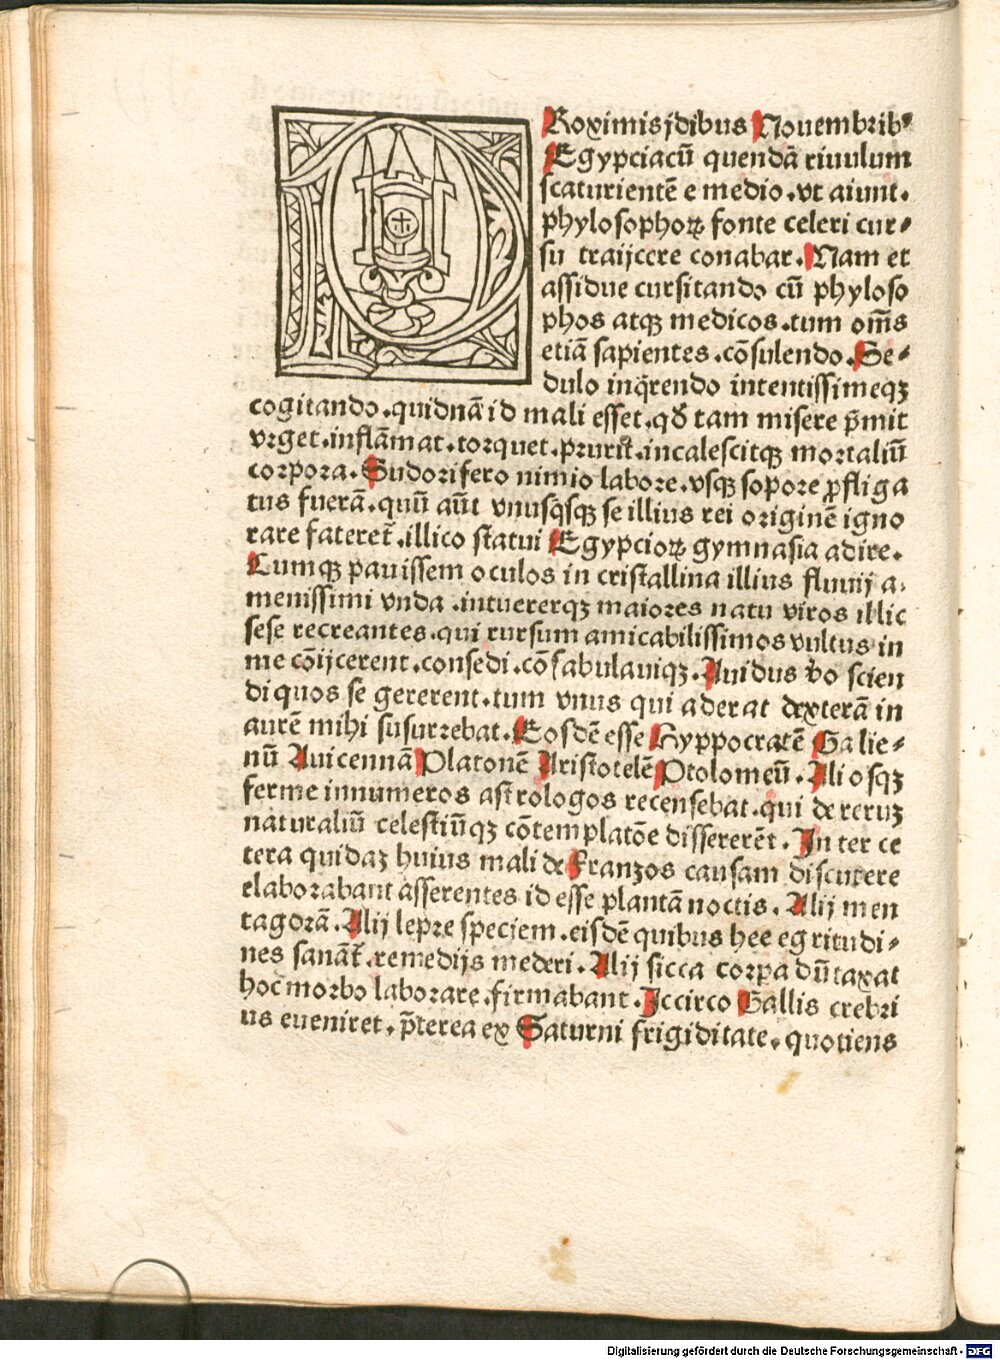 PRoximis jdibus Nouembribꝰ
Egypciacū quendā riuulum
scaturientē e medio.vt aiunt.
phylosophoꝝ fonte celeri cur⸗
su traijcere conabar. Nam et
assidue cursitando cū phyloso
phos atqꝫ medicos.tum om̄s
etiā sapientes.cōsulendo.Se⸗
dulo inq̄rendo intentissimeqꝫ
cogitando.quidnā id mali esset.qđ tam misere p̄mit
vrget.inflāmat.torquet.prurit.incalescitqꝫ mortaliū
corpora. Sudorifero nimio labore.vsqꝫ sopore ꝓfliga
tus fuerā.quū aūt vnusq̄sqꝫ se illius rei originē igno
rare fateret̄.illico statui Egypcioꝝ gymnasia adire.
Cumqꝫ pauissem oculos in cristallina illius fluuij a⸗
menissimi vnda .intuererqꝫ maiores natu viros illic
sese recreantes.qui rursum amicabilissimos vultus in
me cōijcerent.consedi.cōfabulauiqꝫ. Auidus ꝟo scien
di quos se gererent.tum vnus qui aderat dexterā in
aurē mihi susurrebat. Eosdē esse Hyppocratē Galie⸗
nū Auicennā Platonē Aristotelē Ptolomeū. Aliosqꝫ
ferme innumeros astrologos recensebat.qui de reruꝫ
naturaliū celestiūqꝫ cōtemplatōe dissererēt. Inter ce
tera quidaꝫ huius mali de Franzos causam discutere
elaborabant asserentes id esse plantā noctis. Alij men
tagorā. Alij lepre speciem.eisdē quibus hee egritudi⸗
nes sanāt̄.remedijs mederi. Alij sicca corpa dūtaxat
hoc morbo laborare.firmabant. Iccirco Gallis crebri
us eueniret. p̄terea ex Saturni frigiditate. quotiens
Digitalisierung gefördert durch die Deutsche Forschungsgemeinschaft - DFG